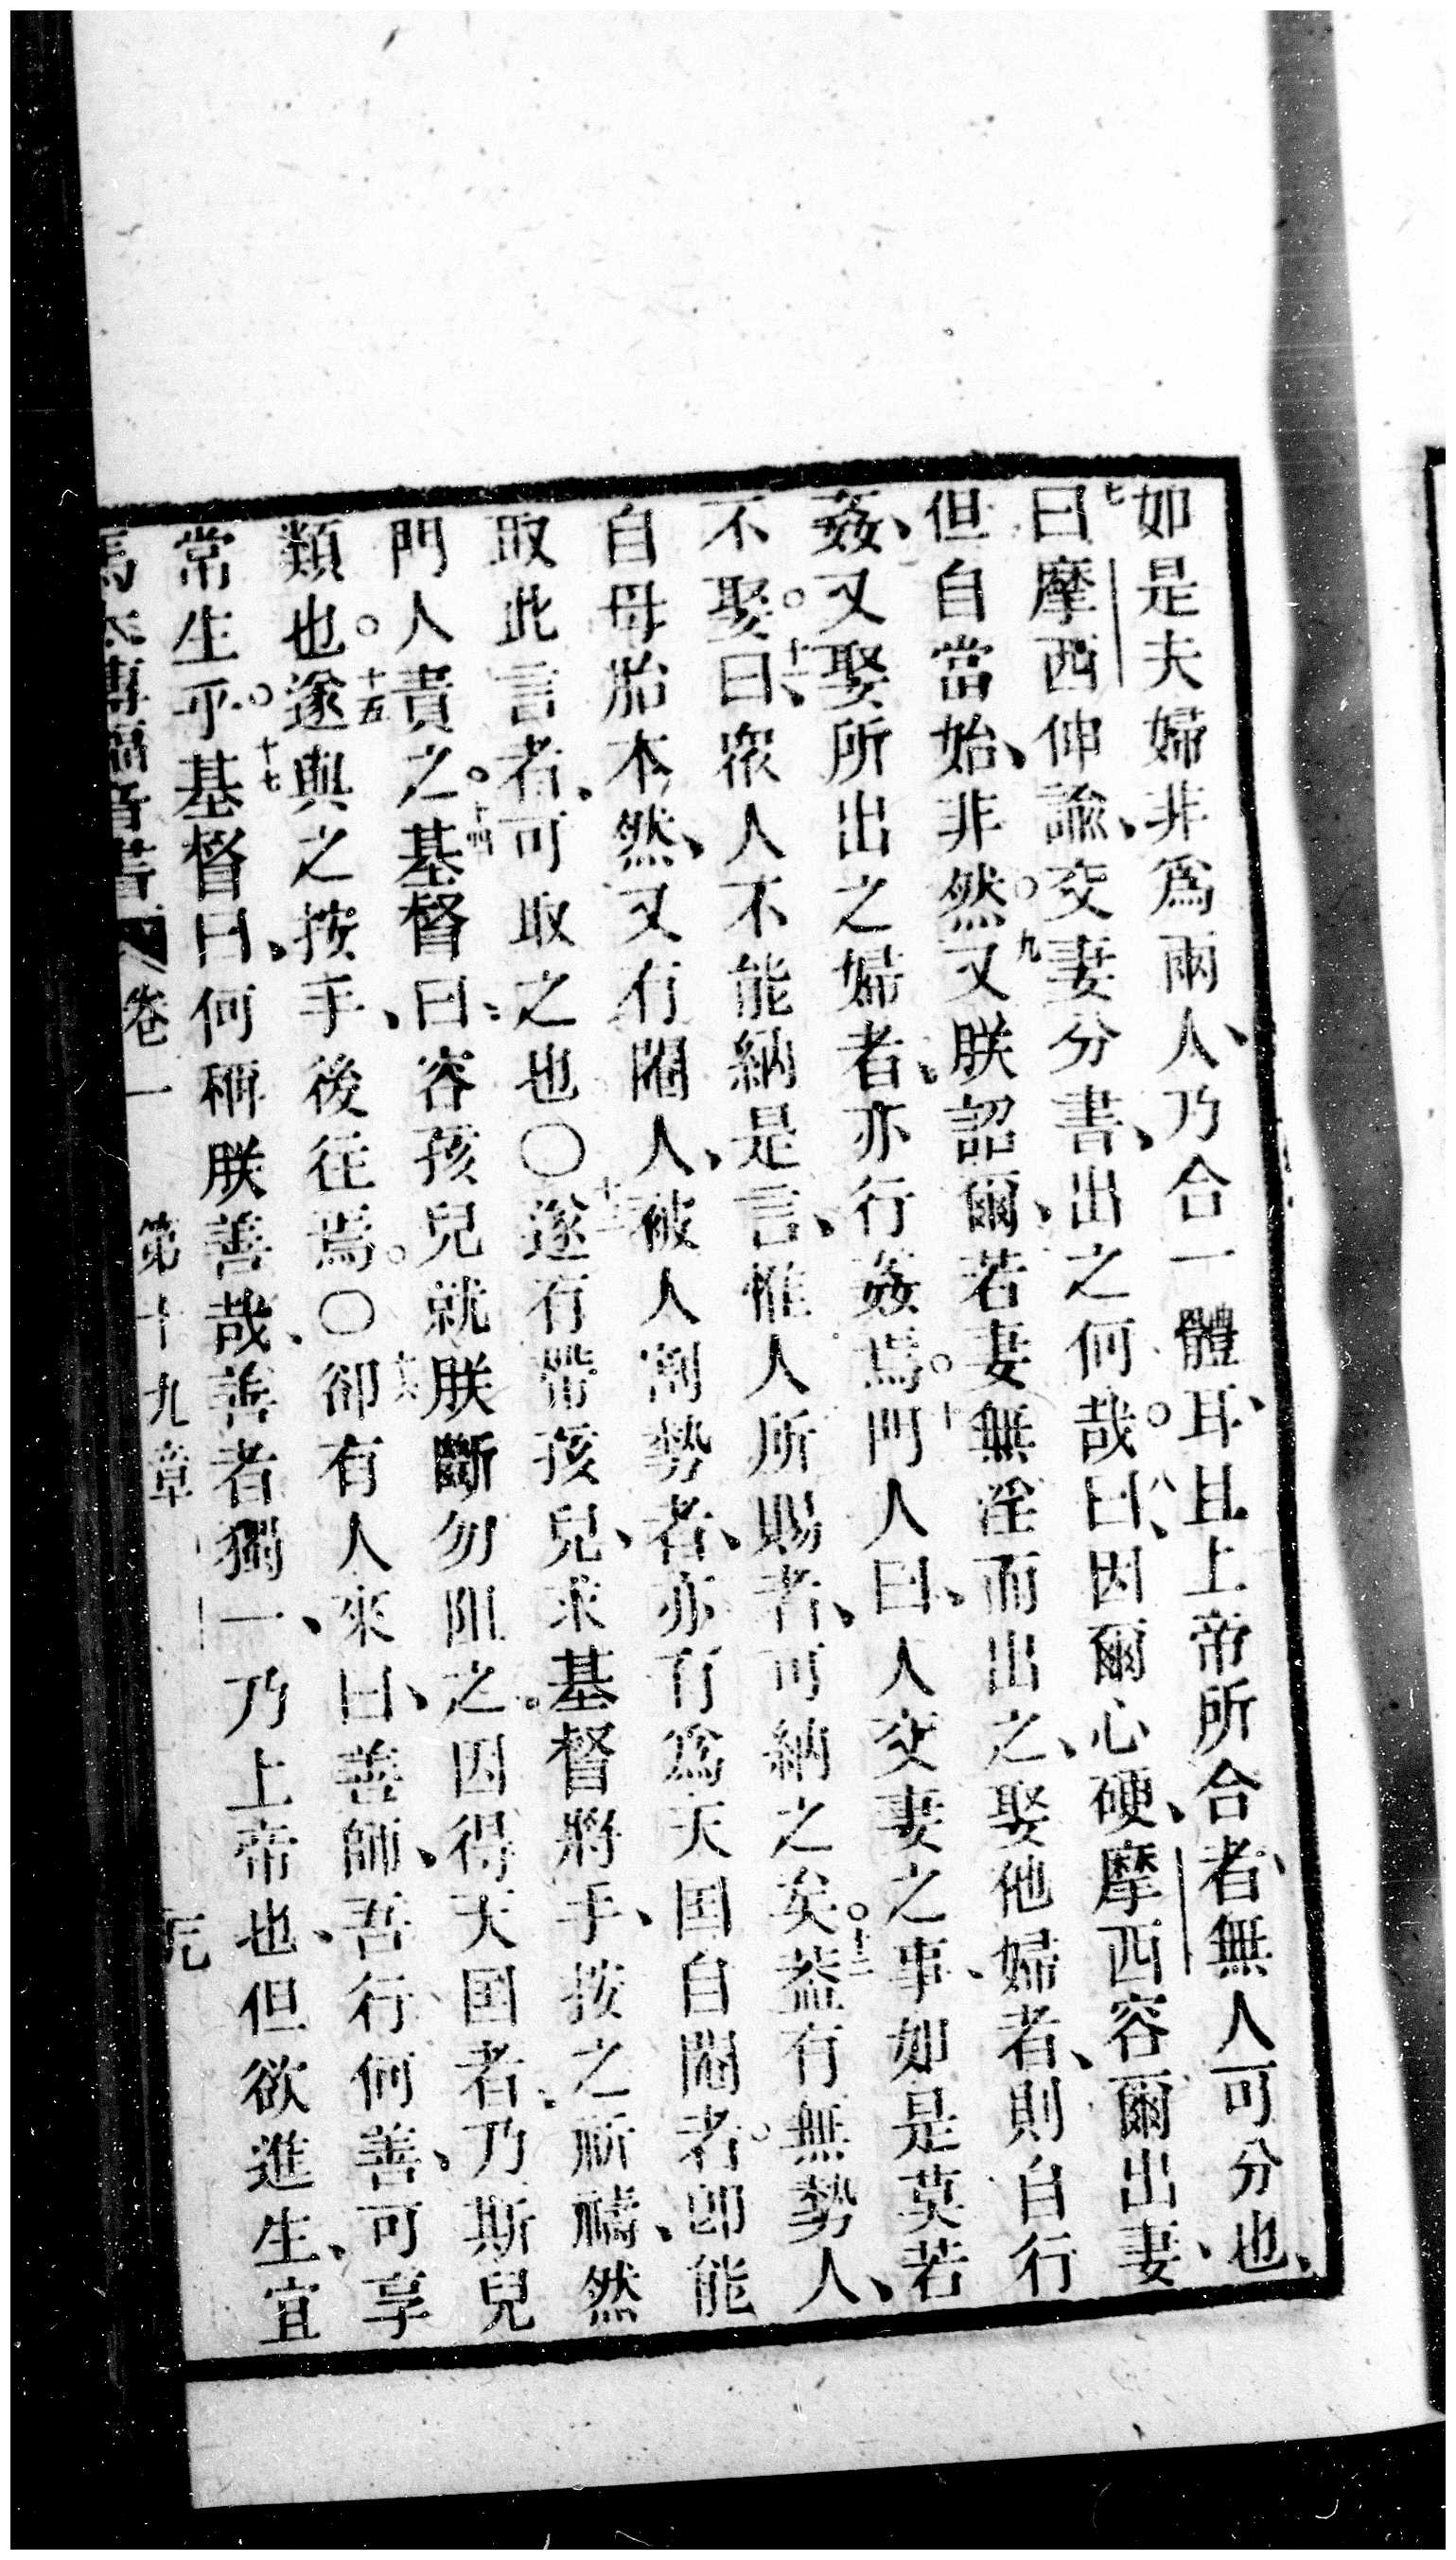 如是夫婦非爲兩人、乃合一體耳、且上帝所合者、無人可分也、
七曰摩西伸諭、交妻分書、出之何哉。八曰、因爾心硬、摩西容爾出妻、
但自當始、非然。九又朕詔爾、若妻無淫而出之、娶他婦者、則自行
姦、又娶所出之婦者、亦行姦焉。十門人曰、人交妻之事、如是莫若
不娶。十一曰、眾人不能納是言、惟人所賜者、可納之矣。十二葢有無勢人、
自母胎本然、又有閹人、被人割勢者、亦有爲天国自閹者。卽能
取此言者、可取之也〇十三遂有帶孩兒、求基督將手、按之祈禱、然
門人責之。十四基督曰、容孩兒就朕、斷勿阻之。因得天国者、乃斯兒
類也。十五遂與之按手、後往焉。〇十六卻有人來曰、善師、吾行何善、可享
常生乎。十七基督曰、何稱朕善哉、善者獨一、乃上帝也、但欲進生、宜
馬太傳福音書 卷一 第十九章 卅九